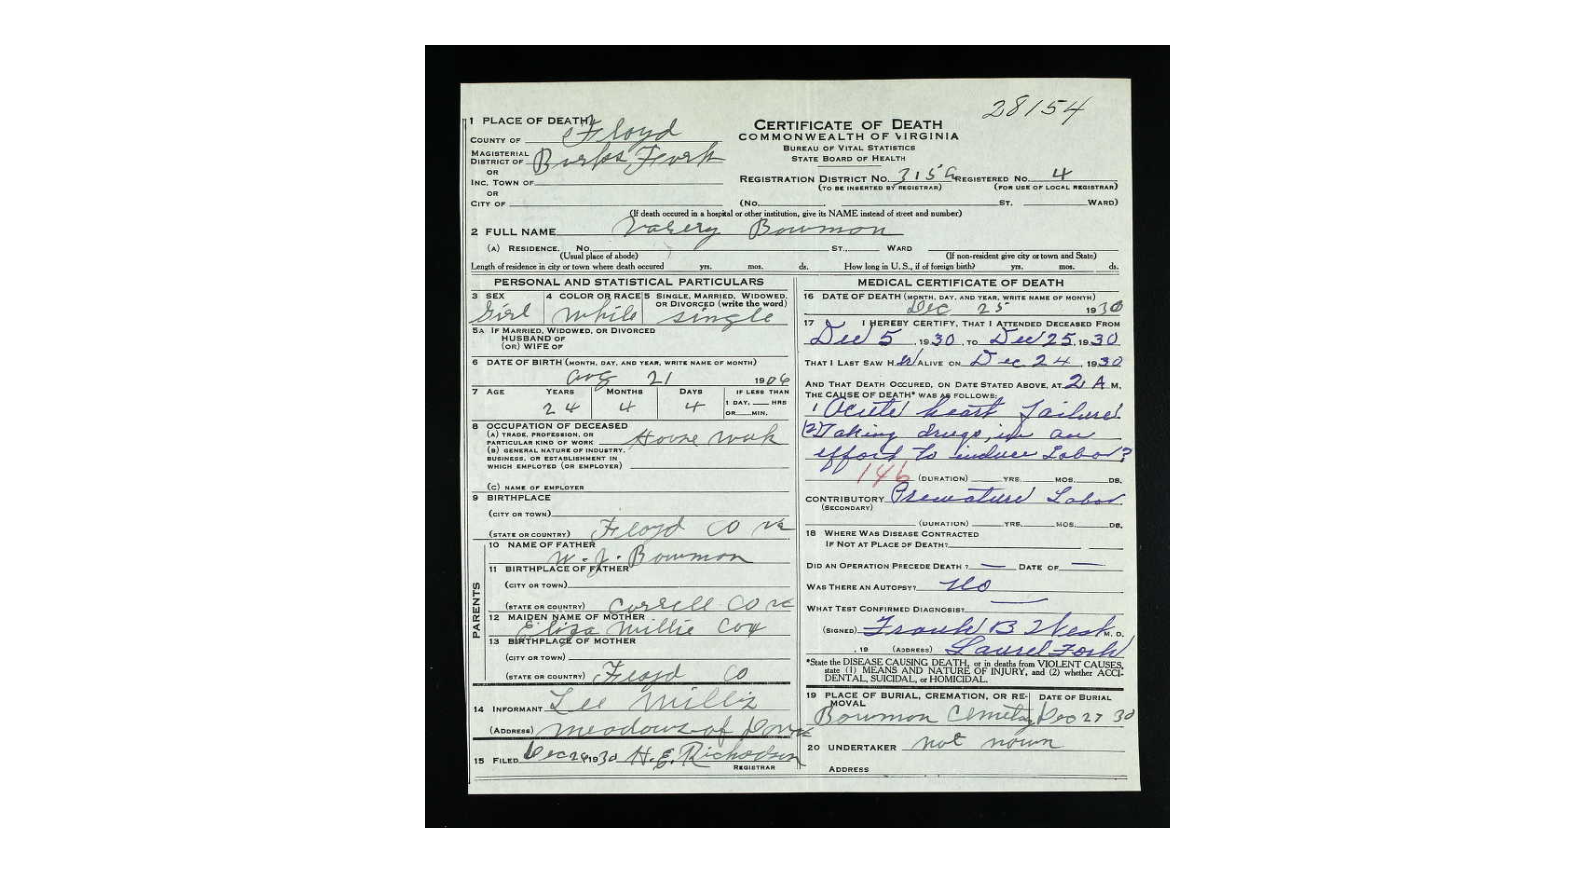 28154
1 PLACE OF DEATH
COUNTY OF Floyd
MAGISTERIAL DISTRICT OF Burks Fork
OR
INC. TOWN OF
OR
CITY OF
CERTIFICATE OF DEATH
COMMONWEALTH OF VIRGINIA
BUREAU OF VITAL STATISTICS
STATE BOARD OF HEALTH
REGISTRATION DISTRICT NO. 315 REGISTERED NO. 4
(TO BE INSERTED BY REGISTRAR) (FOR USE OF LOCAL REGISTRAR)
(NO. ST. WARD)
(If death occured in a hospital or other institution, give its NAME instead of street and number)
2 FULL NAME Bowmon
(A) RESIDENCE. NO. ST., WARD
(Usual place of abode) (If non-resident give city or town and State)
Length of residence in city or town where death occured yrs. mos. ds. How long in U. S., if of foreign birth? yrs. mos. ds.
PERSONAL AND STATISTICAL PARTICULARS
3 SEX 4 COLOR OR RACE 5 SINGLE, MARRIED, WIDOWED, OR DIVORCED (write the word)
Girl While single
5A IF MARRIED, WIDOWED, OR DIVORCED
HUSBAND OF
(OR) WIFE OF
6 DATE OF BIRTH (MONTH, DAY, AND YEAR, WRITE NAME OF MONTH)
Aug 21 1906
7 AGE YEARS MONTHS DAYS IF LESS THAN
1 DAY, HRS
24 4 4 OR MIN.
8 OCCUPATION OF DECEASED
(A) TRADE, PROFESSION, OR
PARTICULAR KIND OF WORK House wok
(B) GENERAL NATURE OF INDUSTRY,
BUSINESS, OR ESTABLISHMENT IN
WHICH EMPLOYED (OR EMPLOYER)
(C) NAME OF EMPLOYER
9 BIRTHPLACE
(CITY OR TOWN)
(STATE OR COUNTRY) Floyd CO va
PARENTS
10 NAME OF FATHER
W. J. Bowmon
11 BIRTHPLACE OF FATHER
(CITY OR TOWN)
(STATE OR COUNTRY) Correll CO va
12 MAIDEN NAME OF MOTHER
Eliza Millie Cox
13 BIRTHPLACE OF MOTHER
(CITY OR TOWN)
(STATE OR COUNTRY) Floyd CO
14 INFORMANT Lee Millis
(ADDRESS) Meadows of Dan va
15 FILED Dec 26 1930 H. E. Richodson
REGISTRAR
MEDICAL CERTIFICATE OF DEATH
16 DATE OF DEATH (MONTH, DAY, AND YEAR, WRITE NAME OF MONTH)
Dec 25 1930
17 I HEREBY CERTIFY, THAT I ATTENDED DECEASED FROM
Dec 5, 1930, TO Dec 25, 1930
THAT I LAST SAW HER ALIVE ON Dec 24, 1930
AND THAT DEATH OCCURED, ON DATE STATED ABOVE, AT 2 A M.
THE CAUSE OF DEATH* WAS AS FOLLOWS:
1 Acute heart failure
(2) Taking drugs, in an
effort to induce Labor?
146 (DURATION) YRS. MOS. DS.
CONTRIBUTORY Premature Labor
(SECONDARY)
(DURATION) YRS. MOS. DS.
18 WHERE WAS DISEASE CONTRACTED
IF NOT AT PLACE OF DEATH?
DID AN OPERATION PRECEDE DEATH? — DATE OF —
WAS THERE AN AUTOPSY? No
WHAT TEST CONFIRMED DIAGNOSIS? —
(SIGNED) Frank B West M. D.
, 19 (ADDRESS) Laurel Fork
*State the DISEASE CAUSING DEATH, or in deaths from VIOLENT CAUSES,
state (1) MEANS AND NATURE OF INJURY, and (2) whether ACCI-
DENTAL, SUICIDAL, or HOMICIDAL.
19 PLACE OF BURIAL, CREMATION, OR RE-MOVAL DATE OF BURIAL
Bowmon Cemetery Dec 27 30
20 UNDERTAKER not nown
ADDRESS